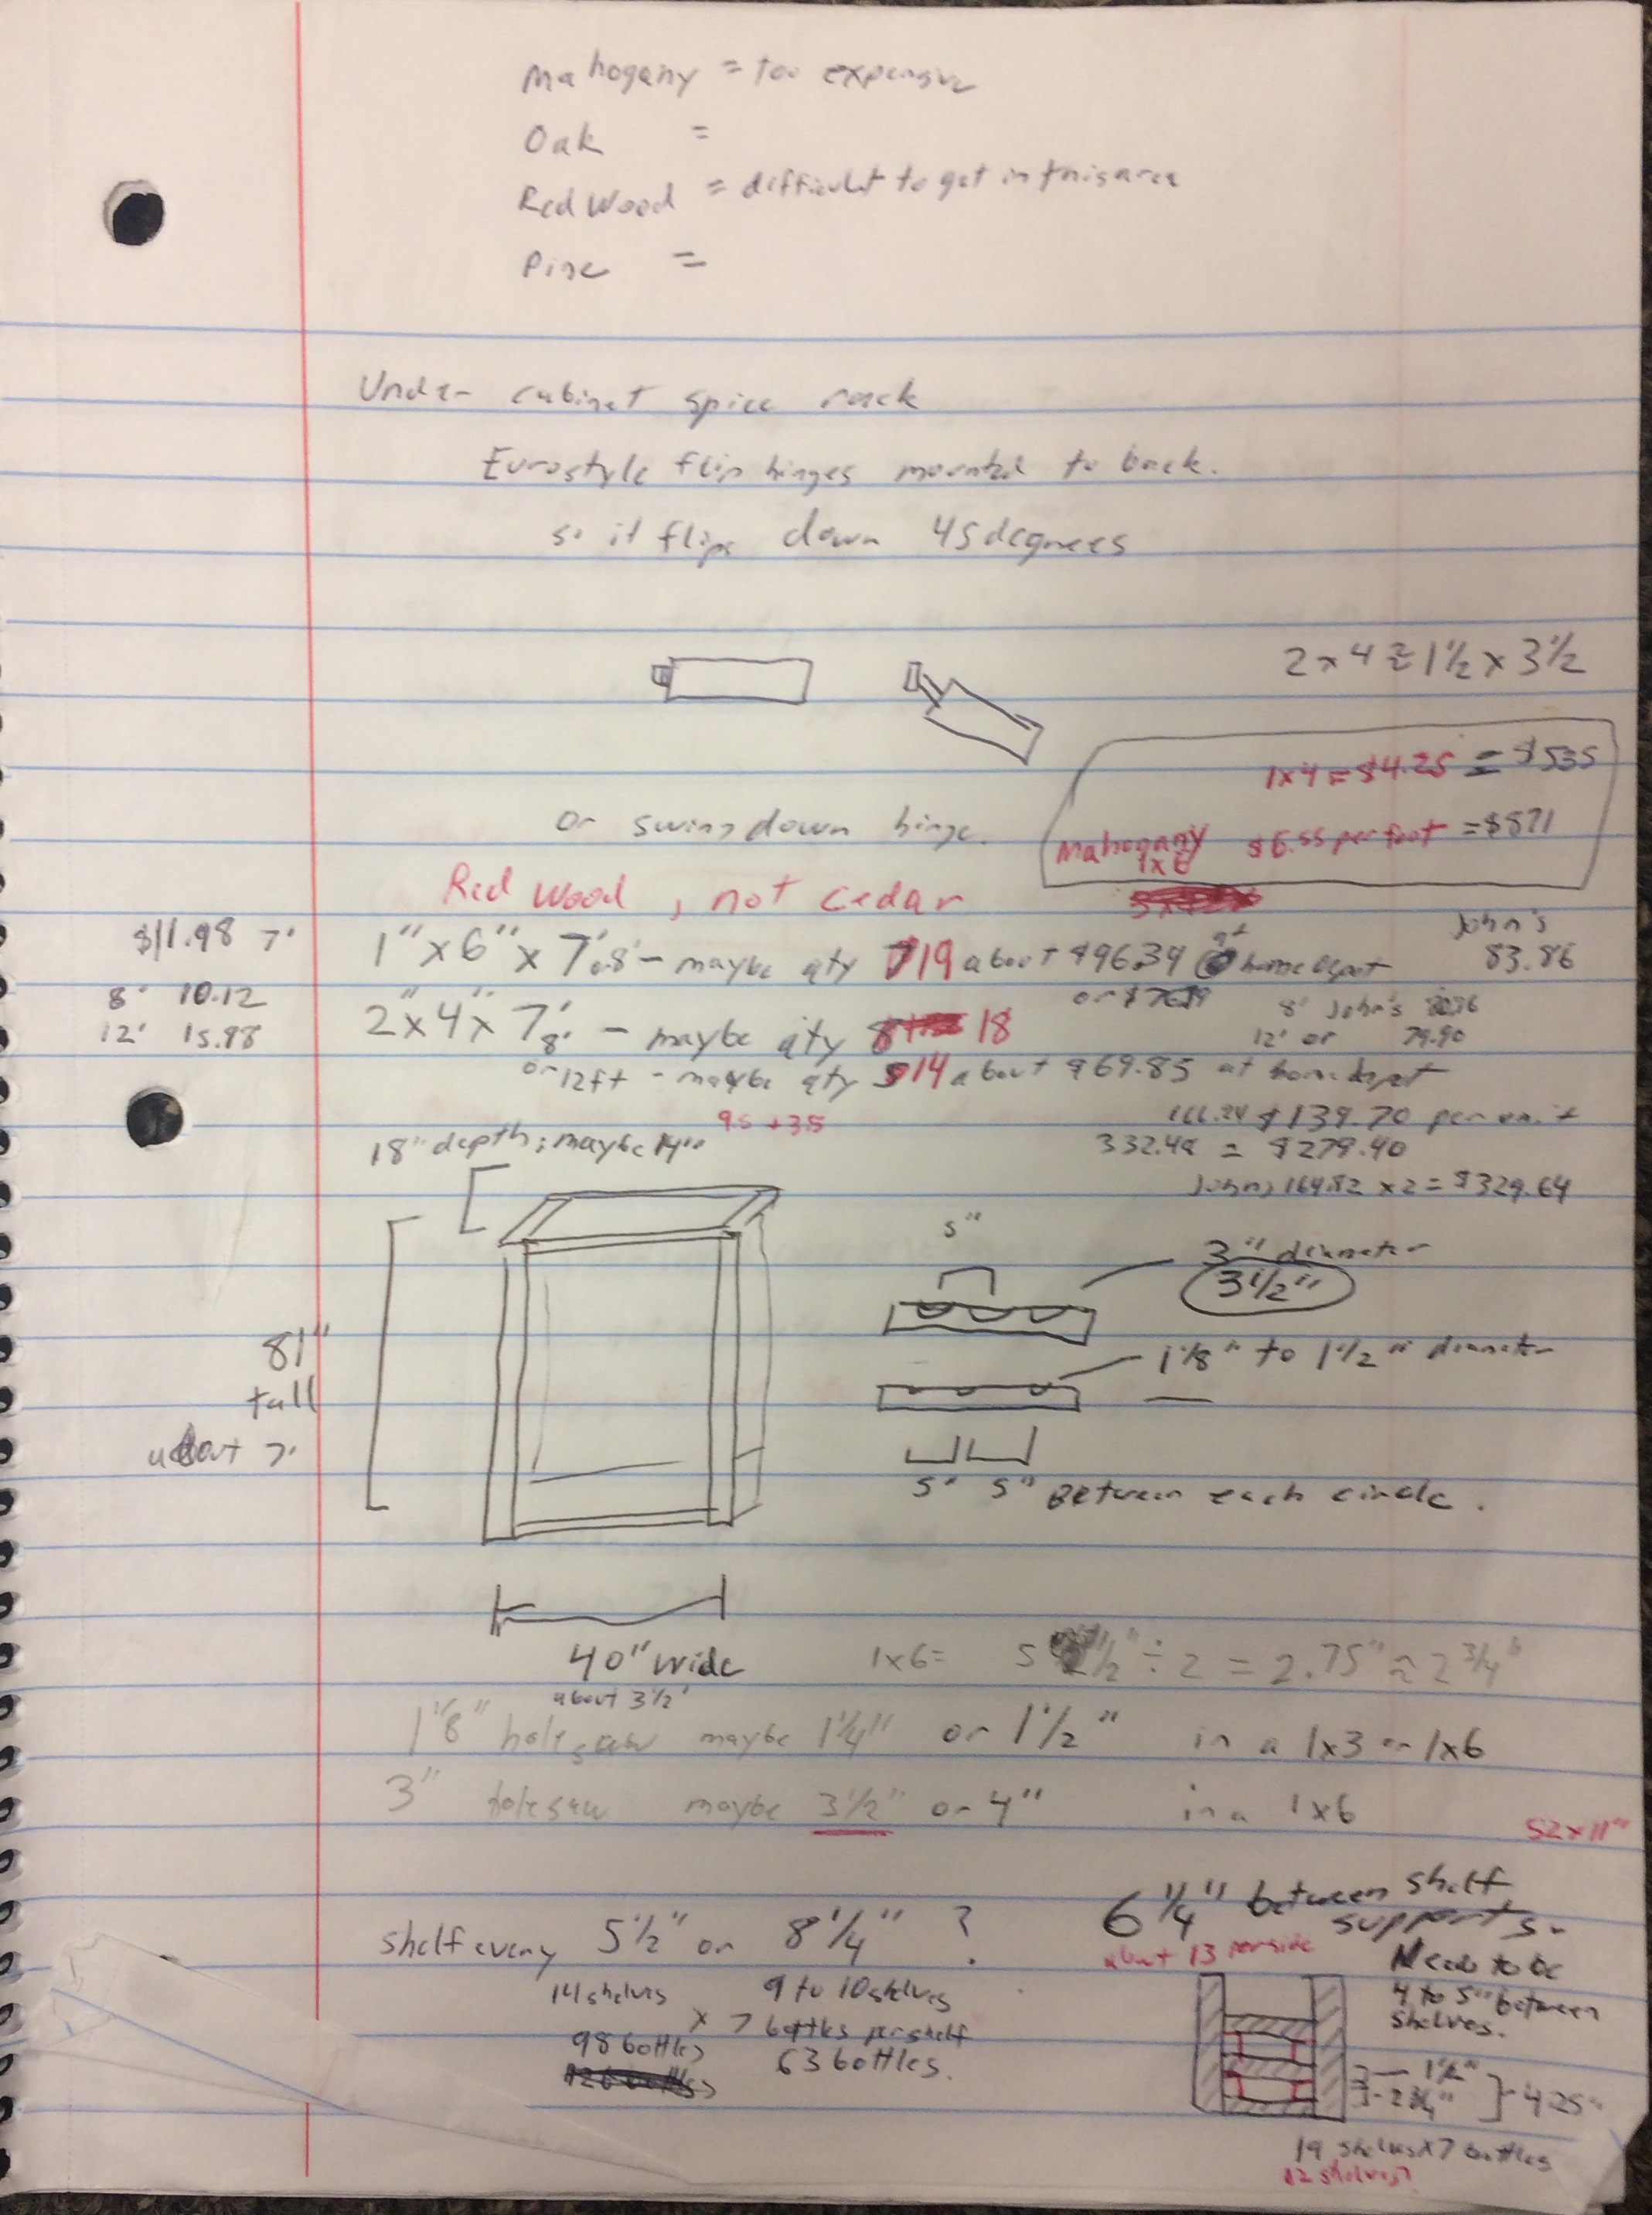 Mahogany = too expensive
Oak =
Red Wood = difficult to get in this area
Pine =
Under cabinet spice rack
Eurostyle flip hinges mounted to back.
so it flips down 45 degrees
2 x 4 ≈ 1 1/2 x 3 1/2
1x4 = $4.25 = $535
or swing down hinge.
Mahogany 1x6 $6.55 per foot = $871
Red Wood, not cedar
$11.98 7'
1" x 6" x 7' 8' - maybe qty 19 about $96.39 at home depot
John's
83.86
or $76.19
8' 10.12
12' 15.98
2" x 4" x 7' 8' - maybe qty 18
8' John's
12' or 79.90
or 12ft - maybe qty 14 about $69.85 at home depot
95 + 35
166.24 $139.70 per unit
18" depth; maybe 14"
332.48 = $279.40
John's 164.82 x 2 = $329.64
5"
3" diameter
3 1/2"
81"
tall
about 7'
1 1/8" to 1 1/2" diameter
5" 5" Between each circle.
40" wide
about 3 1/2'
1x6 = 5 1/2" ÷ 2 = 2.75" ≈ 2 3/4"
1 1/8" hole saw maybe 1 1/4" or 1 1/2" in a 1x3 or 1x6
3" hole saw maybe 3 1/2" or 4" in a 1x6
52 x 11"
6 1/4" between shelf supports.
shelf every 5 1/2" or 8 1/4" ?
about 13 per side
14 shelves 9 to 10 shelves
x 7 bottles per shelf
98 bottles 63 bottles.
Needs to be
4 to 5" between
shelves.
1 1/2"
2 3/4"
4.25"
19 shelves x 7 bottles
12 shelves?